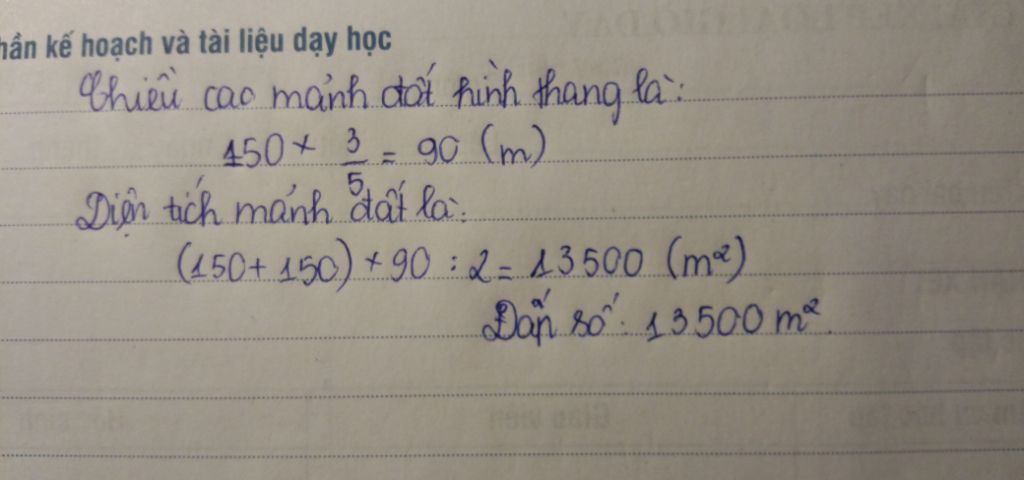 hần kế hoạch và tài liệu dạy học
Chiều cao mảnh đất hình thang là:
150 × 3/5 = 90 (m)
Diện tích mảnh đất là:
(150 + 150) × 90 : 2 = 13500 (m²)
Đấp số: 13500 m².
Giáo viên